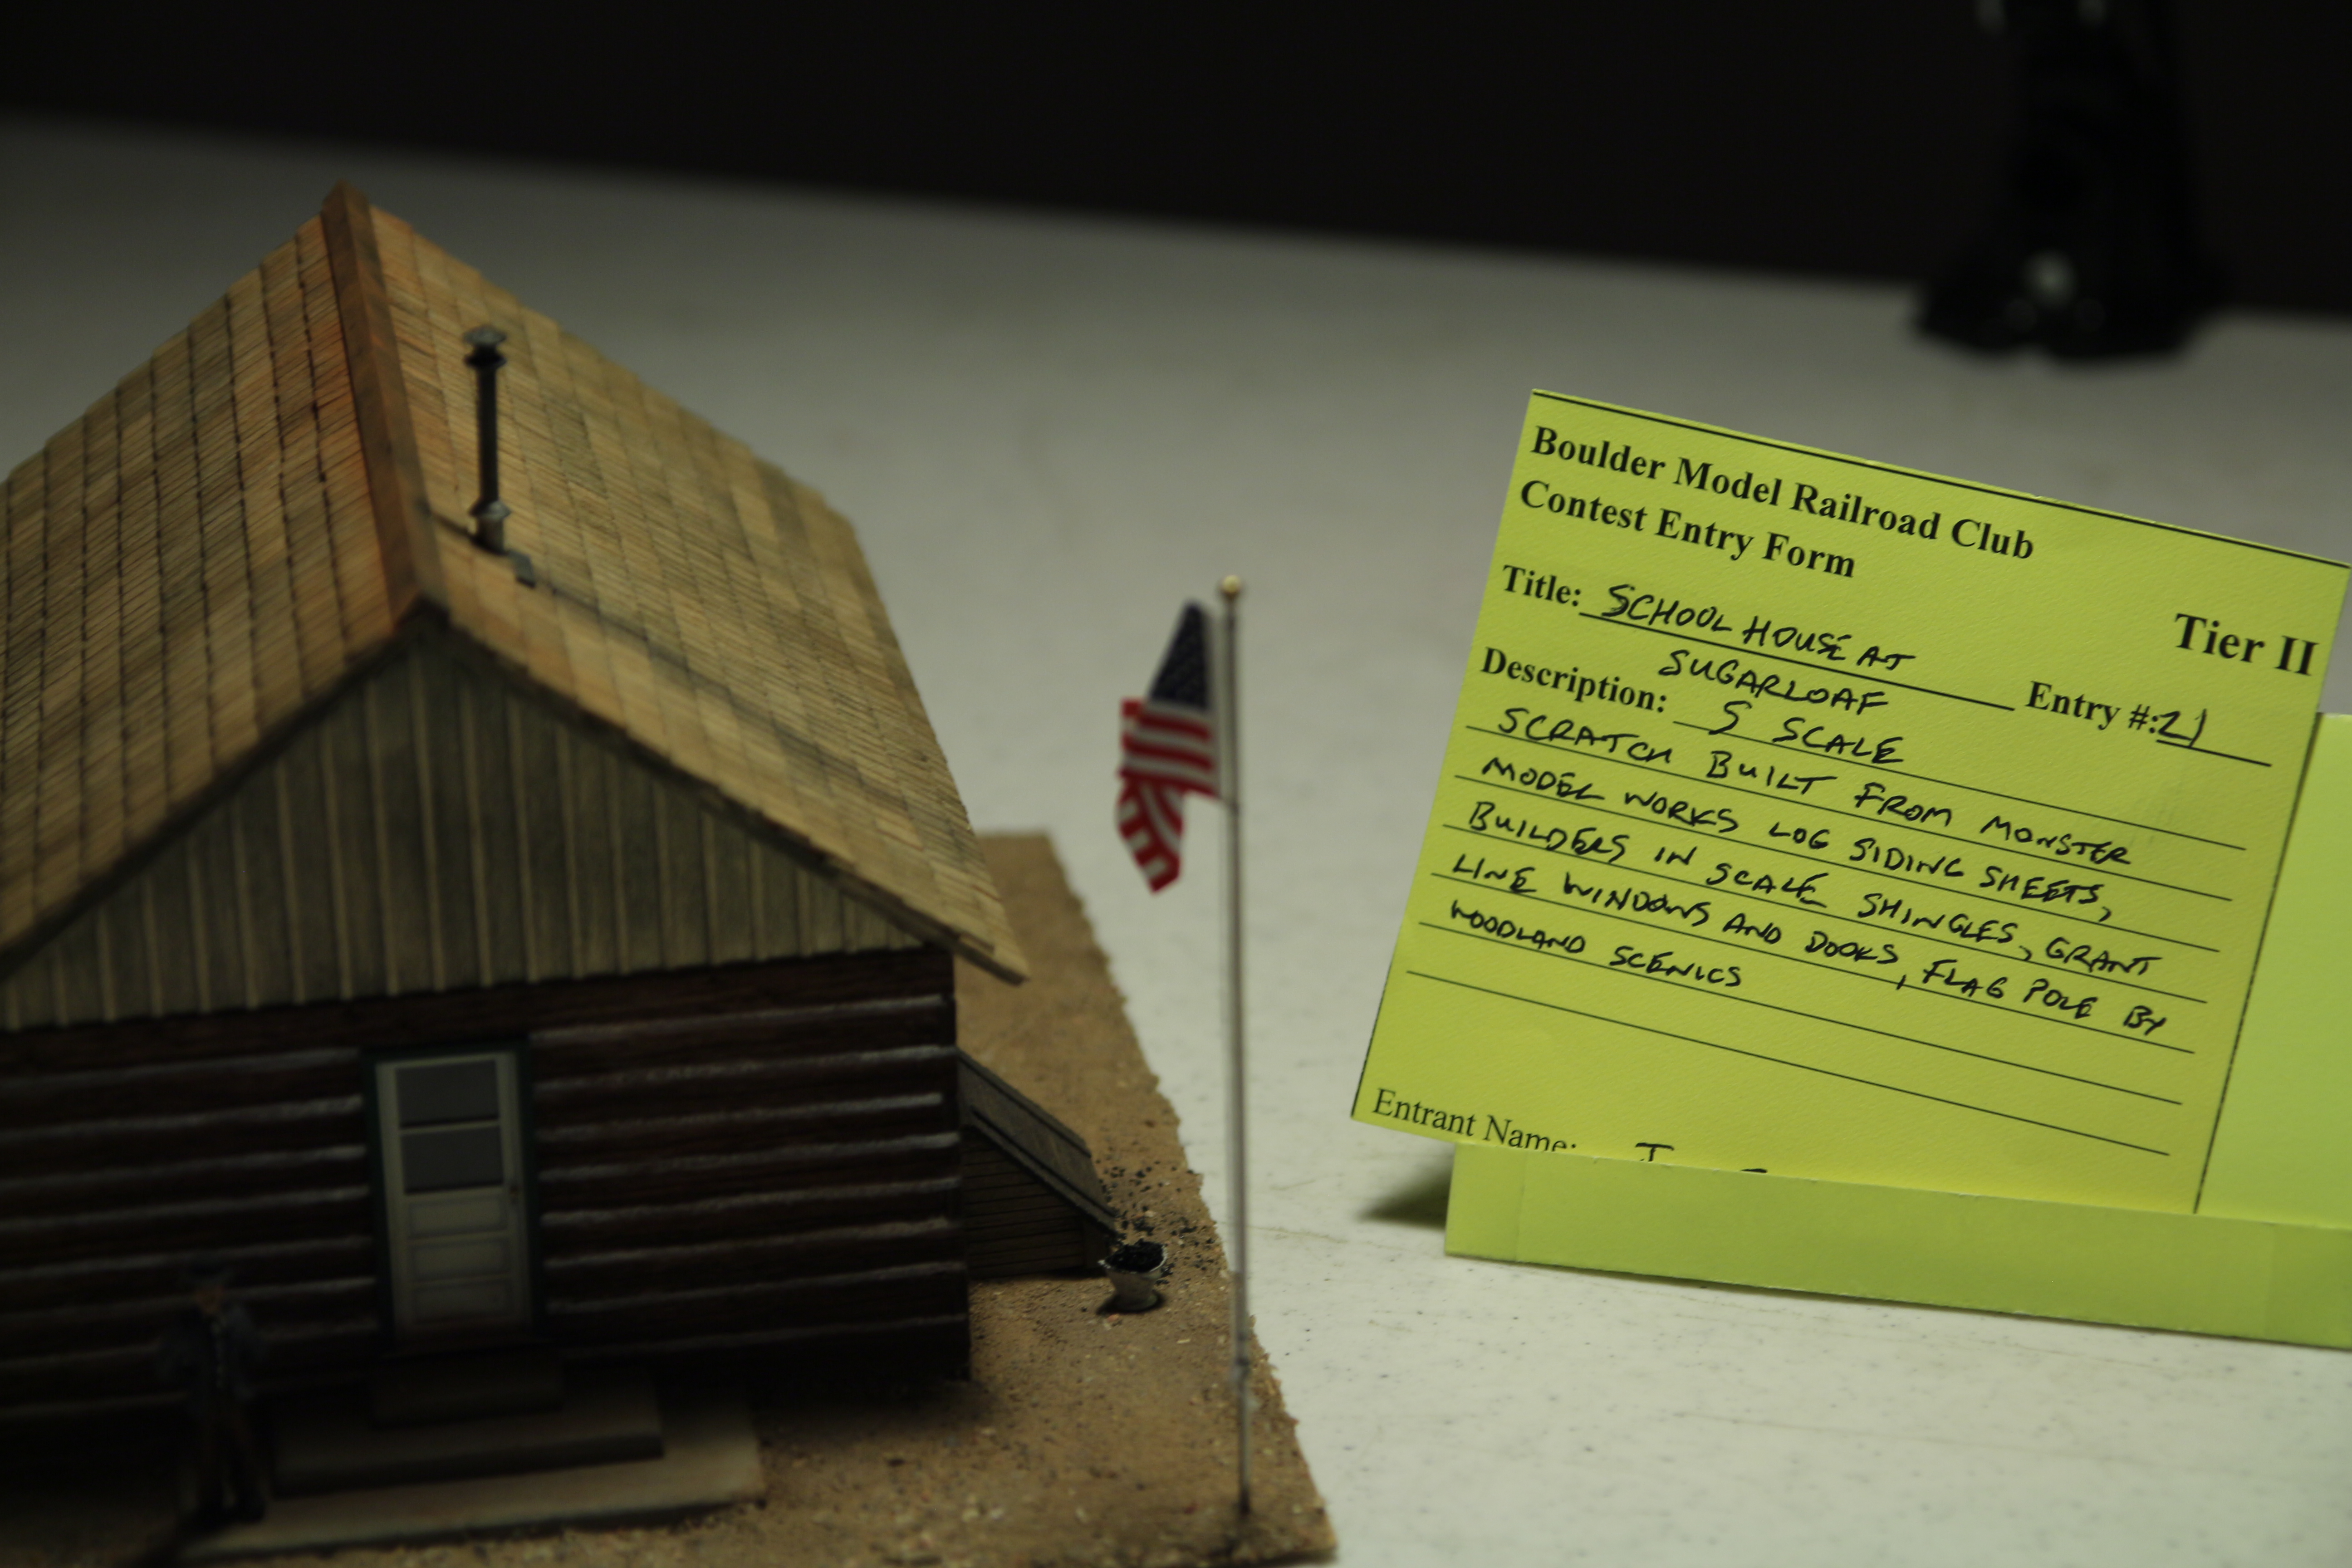 Boulder Model Railroad Club
Contest Entry Form
Tier II
Title: SCHOOL HOUSE AT
SUGARLOAF
Entry #: 21
Description: S SCALE
SCRATCH BUILT FROM MONSTER
MODEL WORKS LOG SIDING SHEETS,
BUILDERS IN SCALE SHINGLES, GRANT
LINE WINDOWS AND DOORS, FLAG POLE BY
WOODLAND SCENICS
Entrant Name: